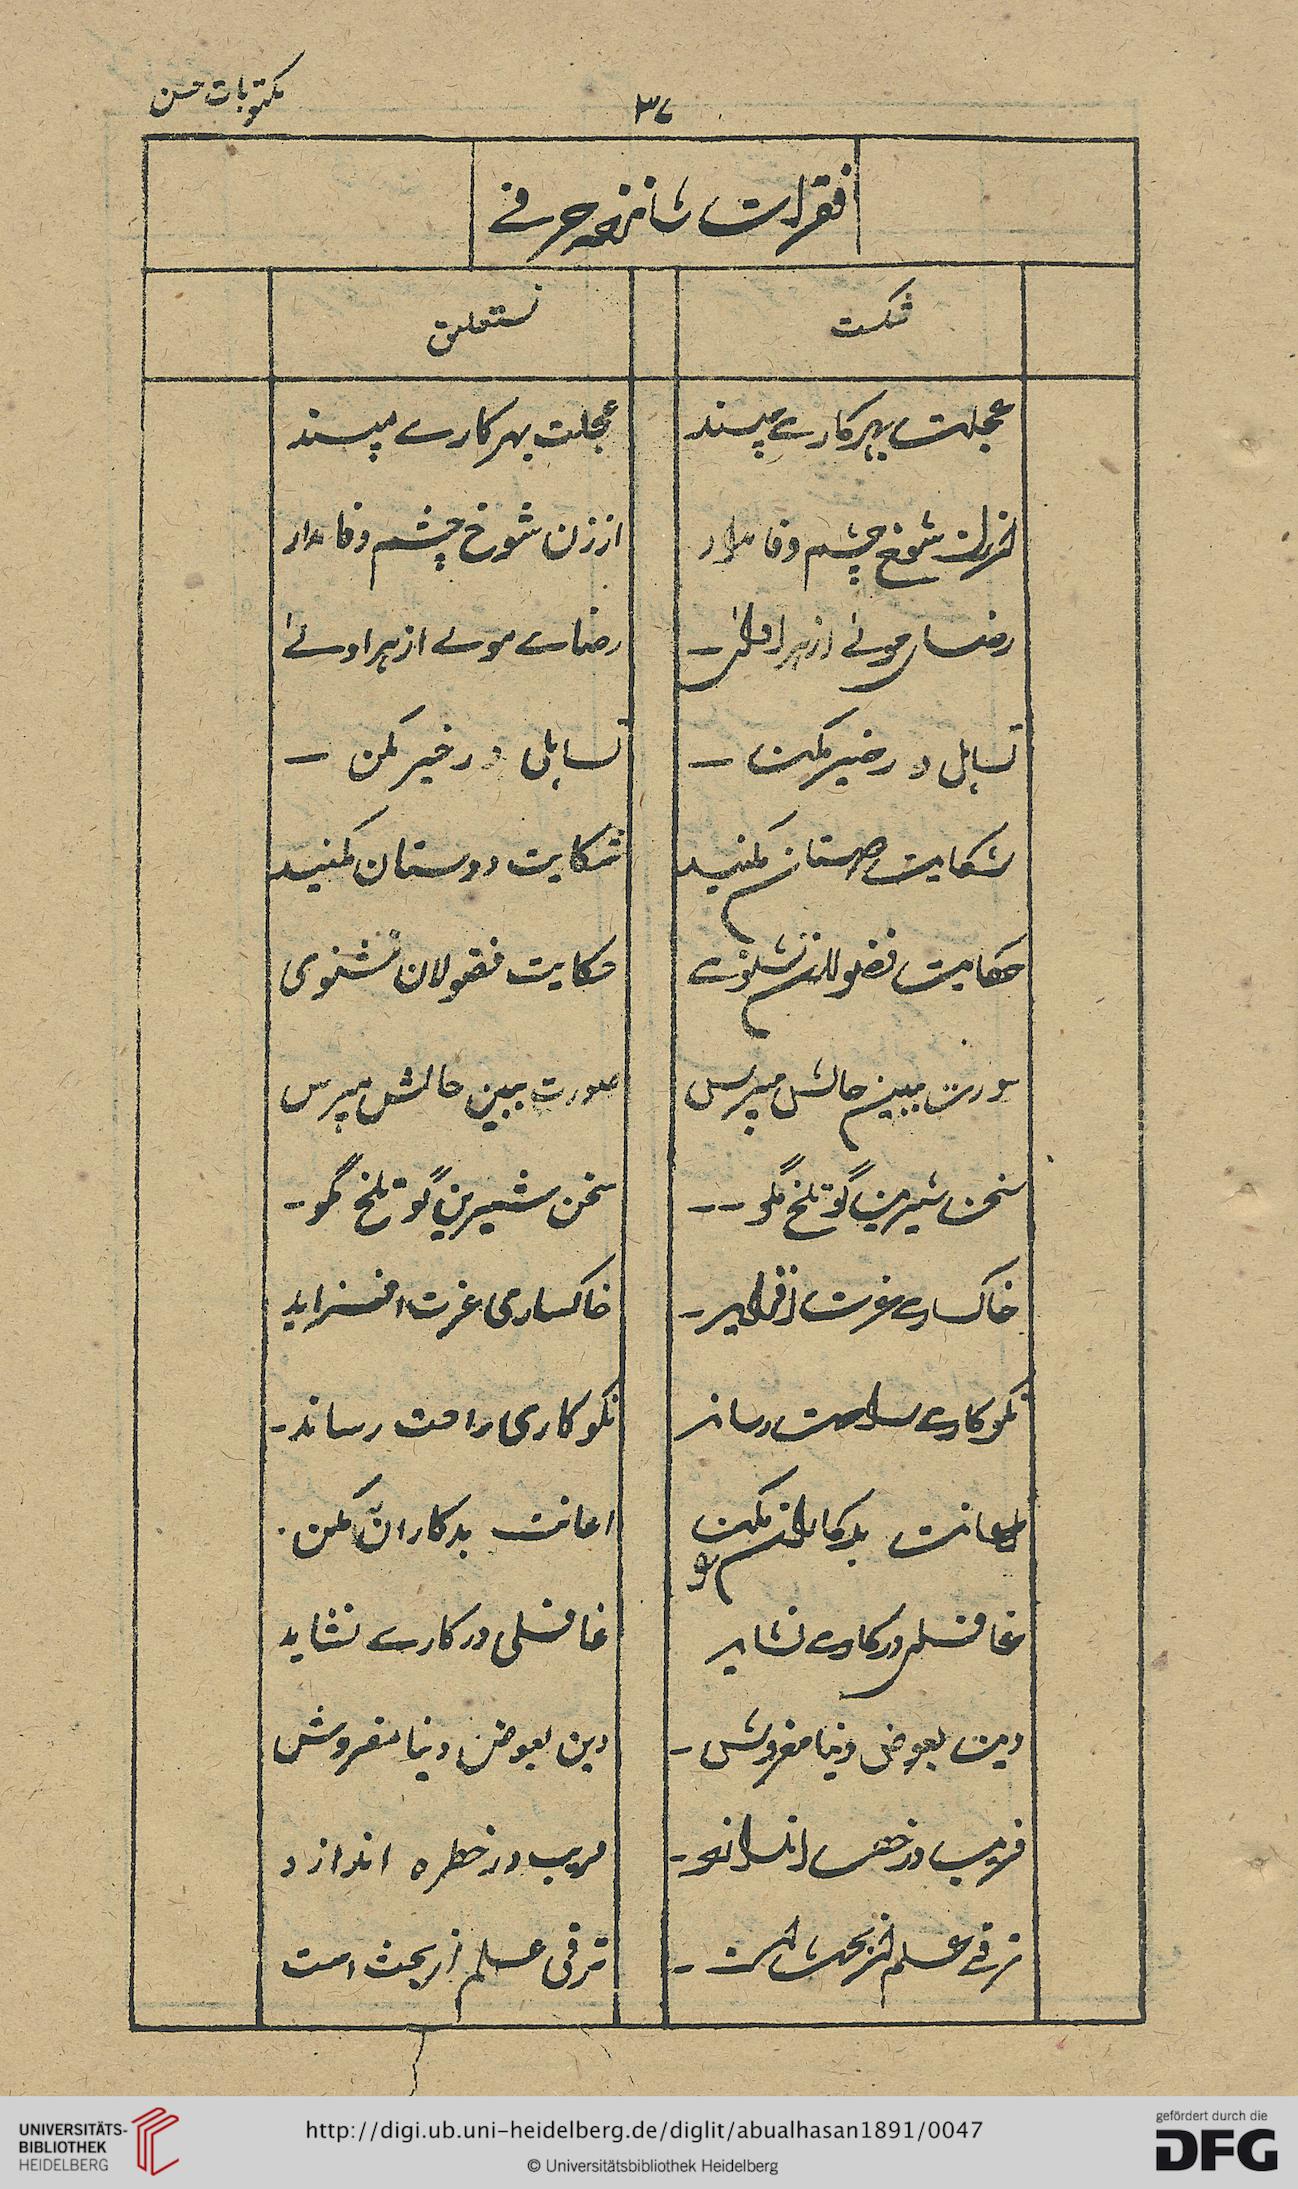 مکتوبات حسن
۳۷
فقرات شانزده حرفے
شکست
نستعلیق
عجلت بہر کارے مپسند
عجلت بہر کارے مپسند
از زن شوخ چشم وفا مدار
از زن شوخ چشم وفا مدار
رضاے مولےٰ از ہر اولےٰ ـ
رضاے مولے از ہر اولےٰ
تساہل در خیر مکن ـ
تساہل در خیر مکن ـ
شکایت دوستان مکنید
شکایت دوستان مکنید
حکایت فضولان نشنوے
حکایت فضولان نشنوی
صورت ببین حالش مپرس
صورت ببین حالش مپرس
سخن شیرین گو تلخ مگو ـ ـ
سخن شیرین گو تلخ مگو ـ
خاکسارے عزت افزاید ـ
خاکساری عزت افزاید
نکوکارے راحت رساند
نکوکاری راحت رساند ـ
اعانت بدکاران مکن
اعانت بدکاران مکن ۔
غافلی در کارے نشاید
غافلی در کارے نشاید
دین بعوض دنیا مفروش ـ
دین بعوض دنیا مفروش
فریب در خطره اندازد ـ
فریب در خطره اندازد
ترقے علم از بحث است ـ
ترقی علم از بحث است
UNIVERSITÄTS-
BIBLIOTHEK
HEIDELBERG
http://digi.ub.uni-heidelberg.de/diglit/abualhasan1891/0047
© Universitätsbibliothek Heidelberg
gefördert durch die
DFG